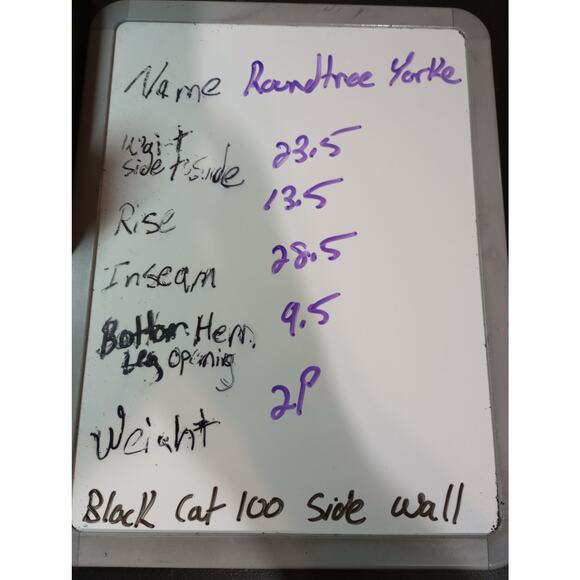 Name Roundtree Yorke
Waist 23.5
side to side
Rise 13.5
Inseam 28.5
Bottom Hem 9.5
Leg Opening
Weight 2P
Black Cat 100 Side Wall